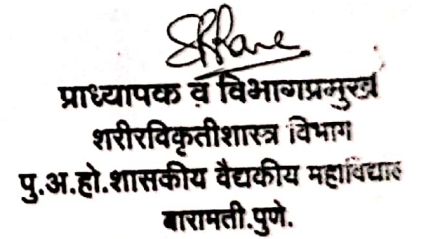 प्राध्यापक व विभागप्रमुख
शरीरविकृतीशास्त्र विभाग
पु.अ.हो.शासकीय वैद्यकीय महाविद्याल
बारामती.पुणे.